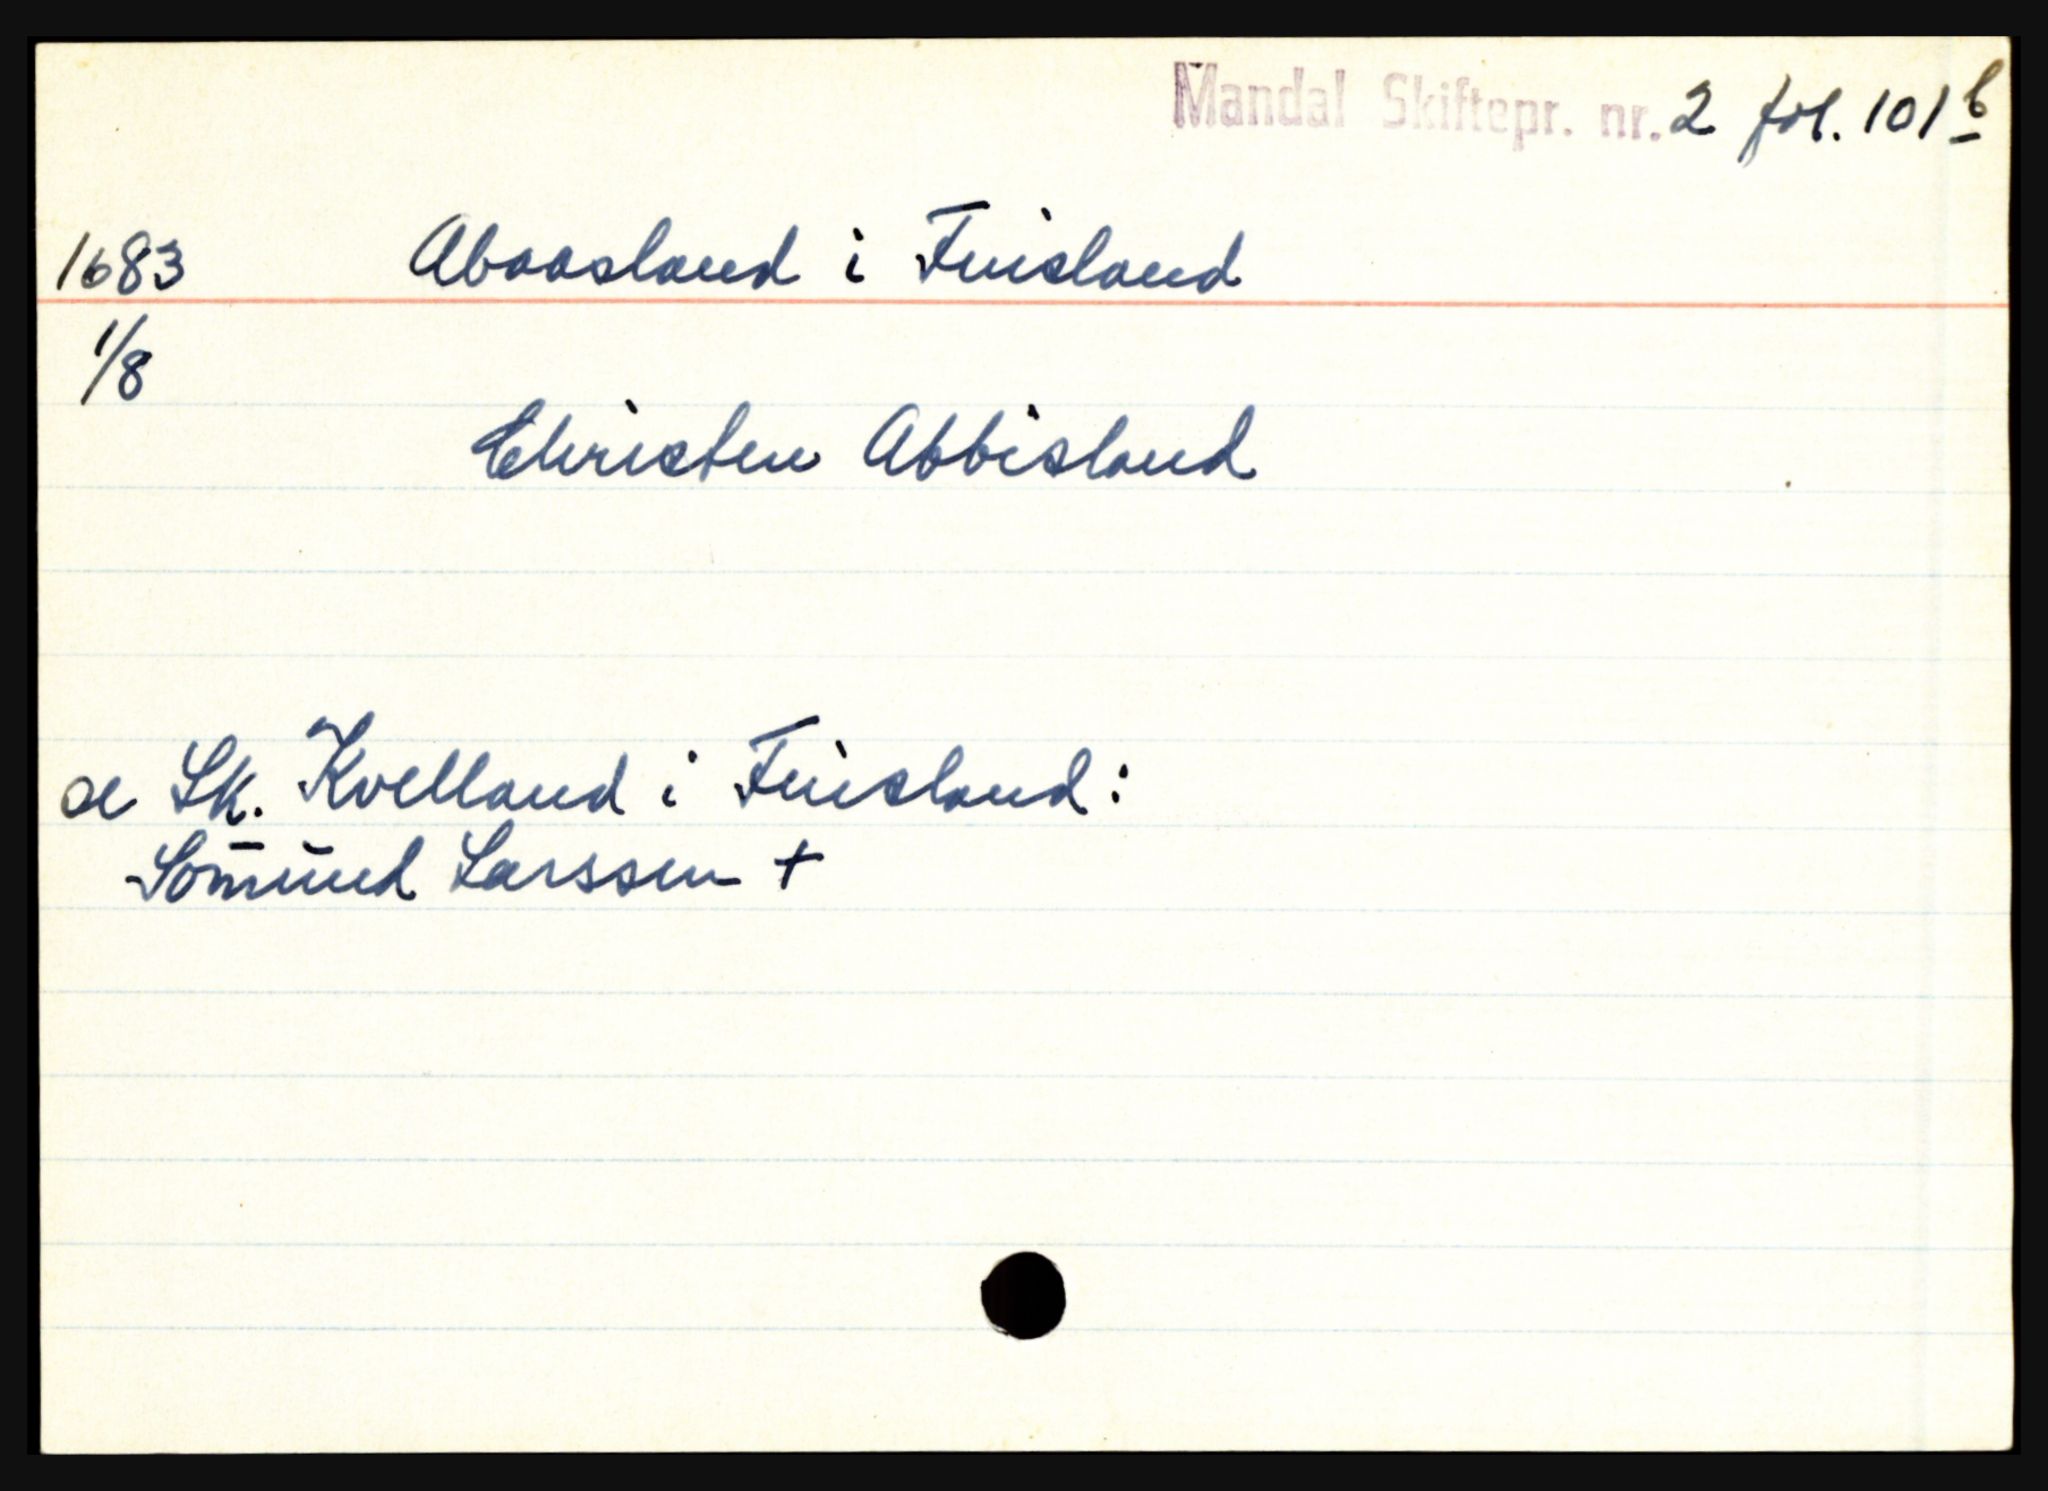 Mandal Skiftepr. nr. 2 fol. 101 b
1683 Abaasland i Finsland
1/8
Christen Abbisland
Sk. Kvelland i Finsland:
Somund Larssen +